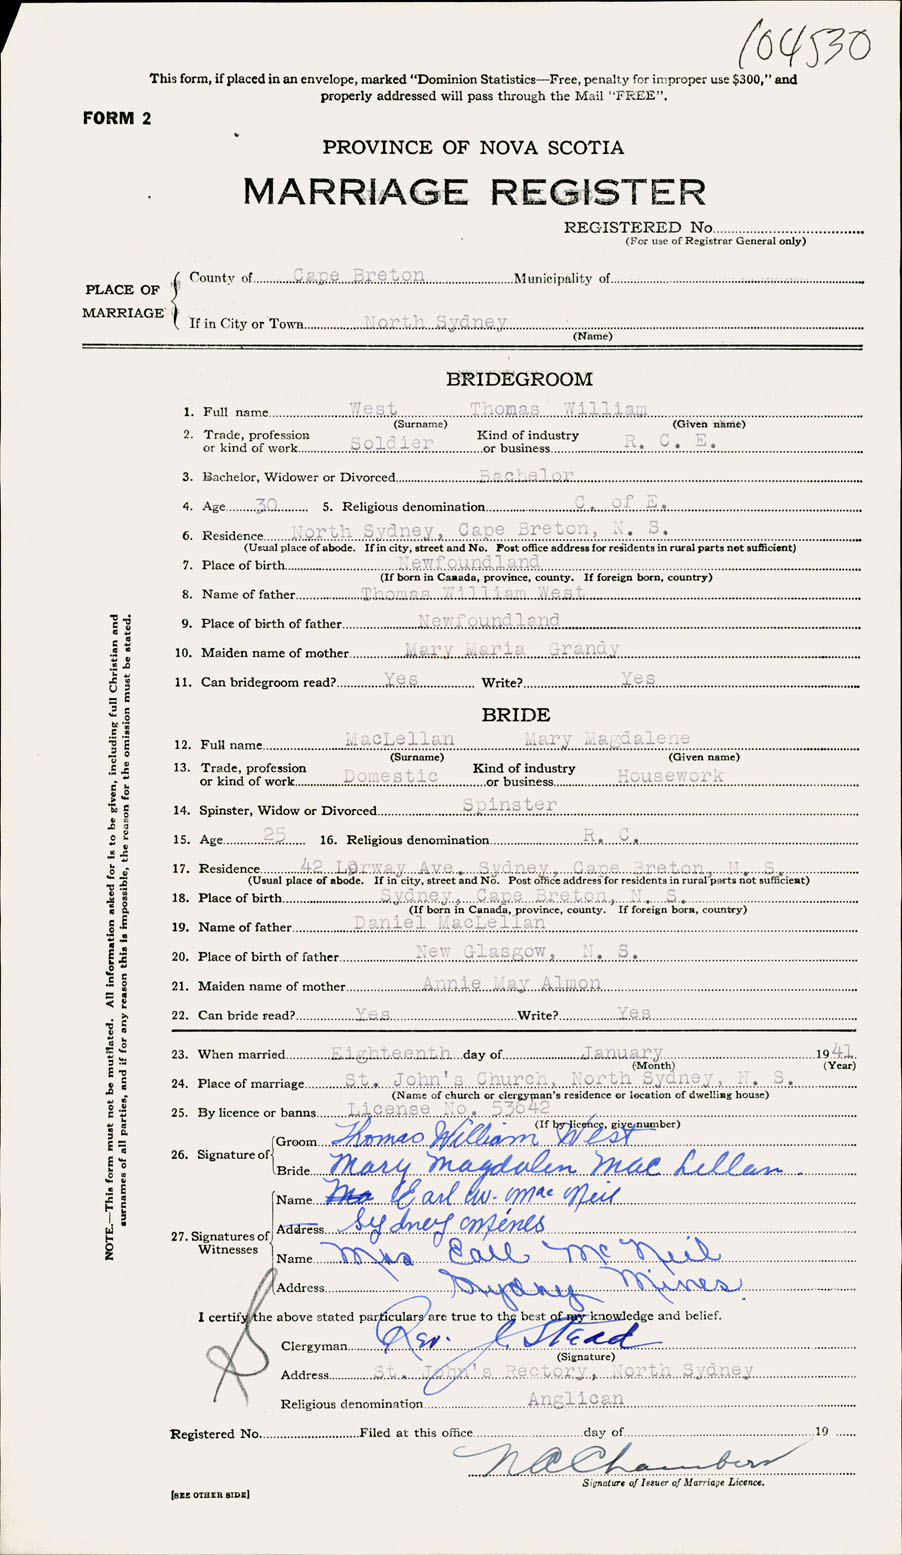 104530
This form, if placed in an envelope, marked "Dominion Statistics—Free, penalty for improper use $300," and
properly addressed will pass through the Mail "FREE".
FORM 2
PROVINCE OF NOVA SCOTIA
MARRIAGE REGISTER
REGISTERED No.
(For use of Registrar General only)
PLACE OF MARRIAGE
County of Cape Breton Municipality of
If in City or Town North Sydney
(Name)
BRIDEGROOM
1. Full name West Thomas William
(Surname) (Given name)
2. Trade, profession or kind of work Soldier Kind of industry or business R. C. E.
3. Bachelor, Widower or Divorced Bachelor
4. Age 30 5. Religious denomination C. of E.
6. Residence North Sydney, Cape Breton, N. S.
(Usual place of abode. If in city, street and No. Post office address for residents in rural parts not sufficient)
7. Place of birth Newfoundland
(If born in Canada, province, county. If foreign born, country)
8. Name of father Thomas William West
9. Place of birth of father Newfoundland
10. Maiden name of mother Mary Maria Grandy
11. Can bridegroom read? Yes Write? Yes
BRIDE
12. Full name MacLellan Mary Magdalene
(Surname) (Given name)
13. Trade, profession or kind of work Domestic Kind of industry or business Housework
14. Spinster, Widow or Divorced Spinster
15. Age 25 16. Religious denomination R. C.
17. Residence 42 Lorway Ave. Sydney, Cape Breton, N. S.
(Usual place of abode. If in city, street and No. Post office address for residents in rural parts not sufficient)
18. Place of birth Sydney, Cape Breton, N. S.
(If born in Canada, province, county. If foreign born, country)
19. Name of father Daniel MacLellan
20. Place of birth of father New Glasgow, N. S.
21. Maiden name of mother Annie May Almon
22. Can bride read? Yes Write? Yes
23. When married Eighteenth day of January 1941
(Month) (Year)
24. Place of marriage St. John's Church, North Sydney, N. S.
(Name of church or clergyman's residence or location of dwelling house)
25. By licence or banns License No. 53642
(If by licence, give number)
26. Signature of
Groom Thomas William West
Bride Mary Magdalen Mac Lellan.
27. Signatures of Witnesses
Name Earl W. MacNeil
Address Sydney Mines
Name Mrs Earl McNeil
Address Sydney Mines.
I certify the above stated particulars are true to the best of my knowledge and belief.
Clergyman Rev. J. Stead
(Signature)
Address St. John's Rectory, North Sydney
Religious denomination Anglican
Registered No. Filed at this office day of 19
N A Chambers
Signature of Issuer of Marriage Licence.
[SEE OTHER SIDE]
NOTE.—This form must not be mutilated. All information asked for is to be given, including full Christian and
surnames of all parties, and if for any reason this is impossible, the reason for the omission must be stated.